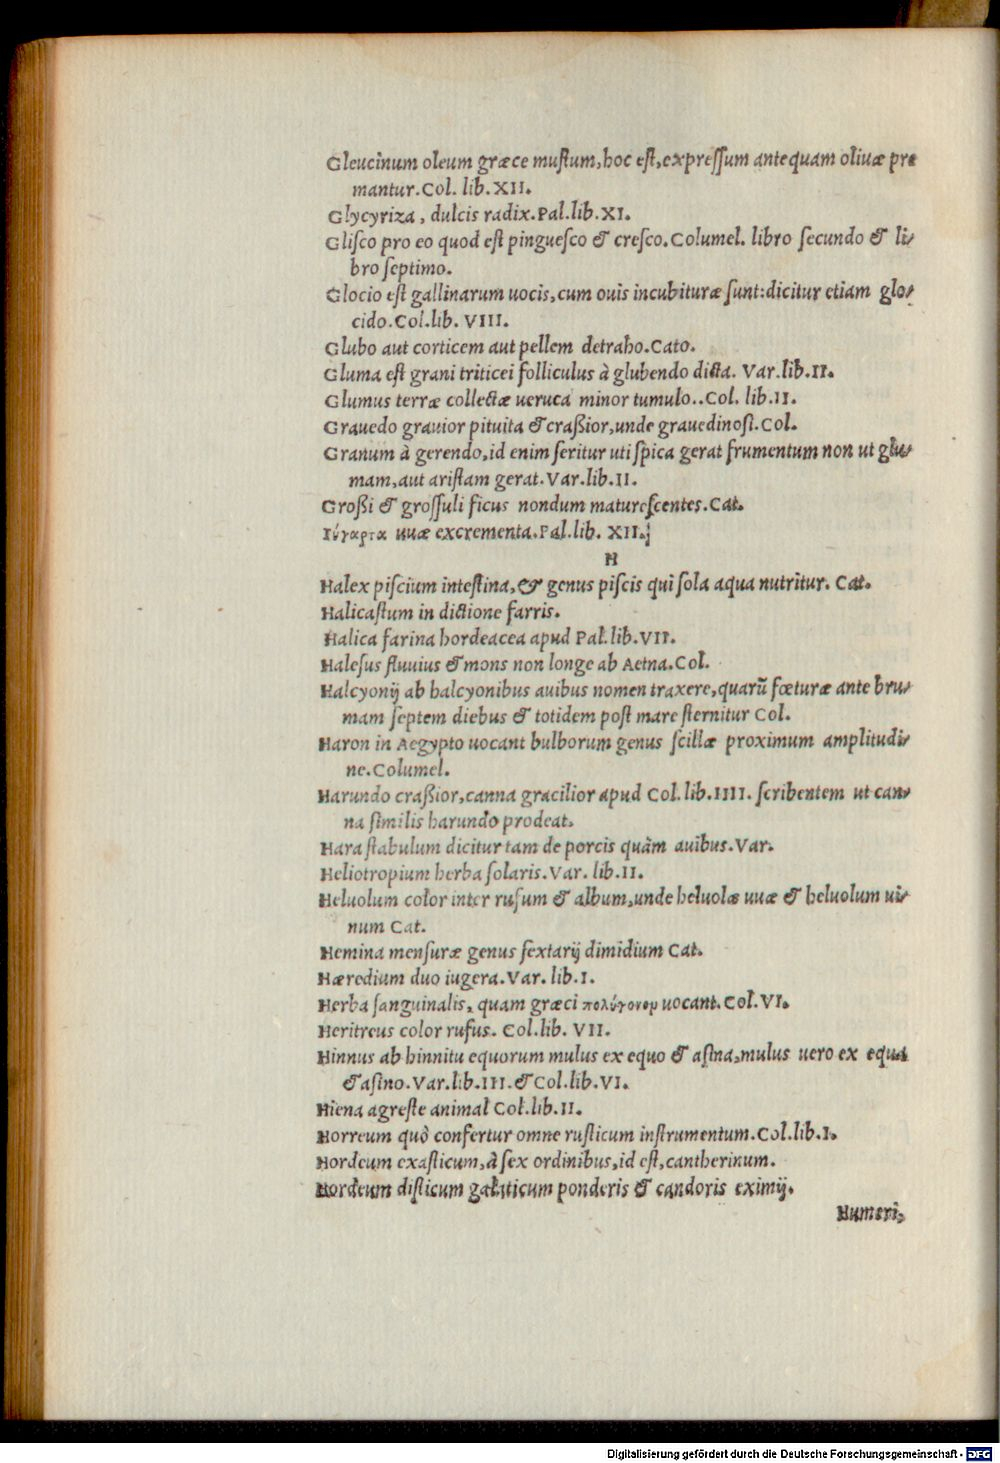 Gleucinum oleum græce mustum, hoc est, expressum ante quam oliuæ pre
mantur. Col. lib. XII.
Glycyriza, dulcis radix. Pal. lib. XI.
Glisco pro eo quod est pinguesco & cresco. Columel. libro secundo & li-
bro septimo.
Glocio est gallinarum uocis, cum ouis incubituræ sunt: dicitur etiam glo-
cido. Col. lib. VIII.
Glubo aut corticem aut pellem detraho. Cato.
Gluma est grani triticei folliculus à glubendo dicta. Var. lib. II.
Glumus terræ collectæ ueruca minor tumulo.. Col. lib. II.
Grauedo grauior pituita & craßior, unde grauedinosi. Col.
Granum à gerendo, id enim seritur uti spica gerat frumentum non ut glu-
mam, aut aristam gerat. Var. lib. II.
Großi & grossuli ficus nondum maturescentes. Cat.
Γύγαρτα uuæ excrementa. Pal. lib. XII.
H
Halex piscium intestina, & genus piscis qui sola aqua nutritur. Cat.
Halicastum in dictione farris.
Halica farina hordeacea apud Pal. lib. VII.
Halesus fluuius & mons non longe ab Aetna. Col.
Halcyonij ab halcyonibus auibus nomen traxere, quarū fœturæ ante bru-
mam septem diebus & totidem post mare sternitur Col.
Haron in Aegypto uocant bulborum genus scillæ proximum amplitudi-
ne. Columel.
Harundo craßior, canna gracilior apud Col. lib. IIII. scribentem ut can-
na similis harundo prodeat.
Hara stabulum dicitur tam de porcis quàm auibus. Var.
Heliotropium herba solaris. Var. lib. II.
Heluolum color inter rufum & album, unde heluolæ uuæ & heluolum ui-
num Cat.
Hemina mensuræ genus sextarij dimidium Cat.
Hæredium duo iugera. Var. lib. I.
Herba sanguinalis, quam græci πολύγονον uocant. Col. VI.
Heritreus color rufus. Col. lib. VII.
Hinnus ab hinnitu equorum mulus ex equo & asina, mulus uero ex equa
& asino. Var. lib. III. & Col. lib. VI.
Hiena agreste animal Col. lib. II.
Horreum quò confertur omne rusticum instrumentum. Col. lib. I.
Hordeum exasticum, à sex ordinibus, id est, cantherinum.
Hordeum disticum galaticum ponderis & candoris eximij.
Humeri,
Digitalisierung gefördert durch die Deutsche Forschungsgemeinschaft - DFG